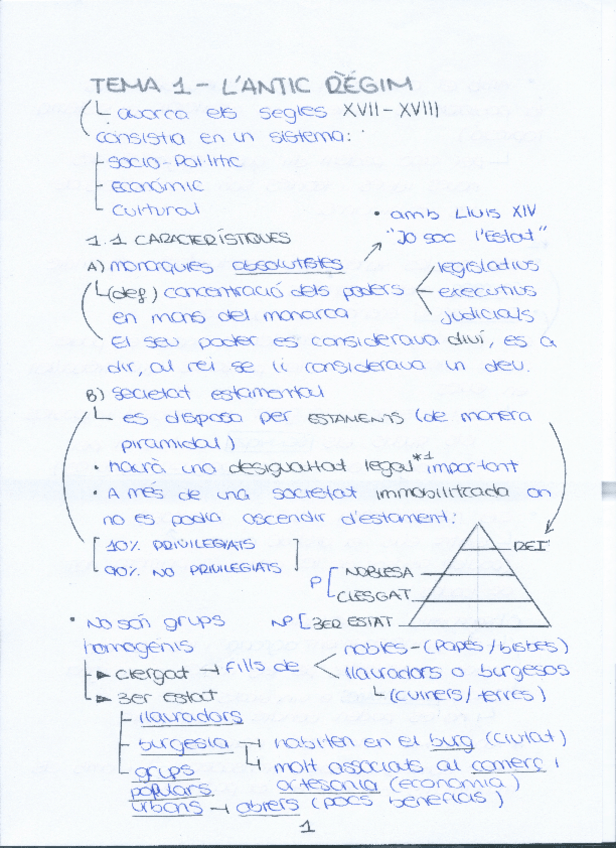 TEMA 1 - L'ANTIC RÈGIM
avarca els segles XVII-XVIII
consistia en un sistema:
socio-Polític
econòmic
cultural
• amb Lluis XIV
"Jo soc l'Estat"
1.1 CARACTERÍSTIQUES
A) monarquies absolutistes
(def) concentració dels poders
legislatius
executius
judicials
en mans del monarca
El seu poder es considerava diví, es a
dir, al rei se li considerava un deu.
B) societat estamental
es disposa per ESTAMENTS (de manera
piramidal)
• haurà una desigualtat legal*1 important
• A més de una societat immobilitzada on
no es podia ascendir d'estament:
10% PRIVILEGIATS
90% NO PRIVILEGIATS
REI
P [ NOBLESA
CLERGAT
NP [ 3ER ESTAT
• No són grups
homogénis
clergat → fills de
nobles - (Papes/bisbes)
llauradors o burgesos
(cuiners/terres)
3er estat
llauradors
burgesia
habiten en el burg (ciutat)
molt associats al comerç i
artesania (economia)
grups
populars
urbans → obrers (pocs beneficis)
1